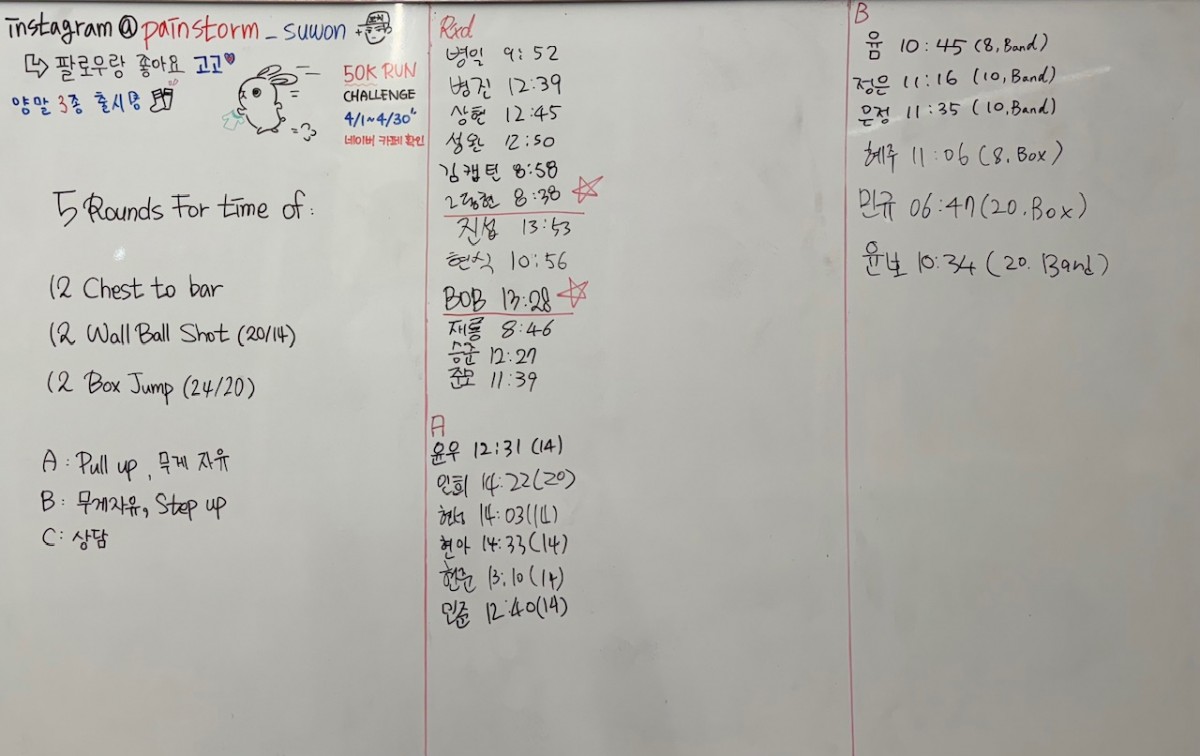 instagram@painstorm_suwon
↳ 팔로우랑 좋아요 고고♥
양말 3종 출시중
50K RUN
CHALLENGE
4/1~4/30
네이버 카페 확인
5 Rounds For time of:
12 Chest to bar
12 Wall Ball Shot (20/14)
12 Box Jump (24/20)
A: Pull up, 무게 자유
B: 무게자유, Step up
C: 상담
Rxd
병일 9:52
병진 12:39
상현 12:45
성완 12:50
김캡틴 8:58
8:38
진섭 13:53
현식 10:56
BOB 13:28
재룡 8:46
승준 12:27
준모 11:39
A
윤우 12:31 (14)
인희 14:22(20)
14:03
현아 14:33(14)
현준 13:10(14)
민준 12:40(14)
B
윰 10:45 (8, Band)
정은 11:16 (10, Band)
은정 11:35 (10, Band)
혜주 11:06 (8. Box)
민규 06:47(20. Box)
윤보 10:34 (20. Band)